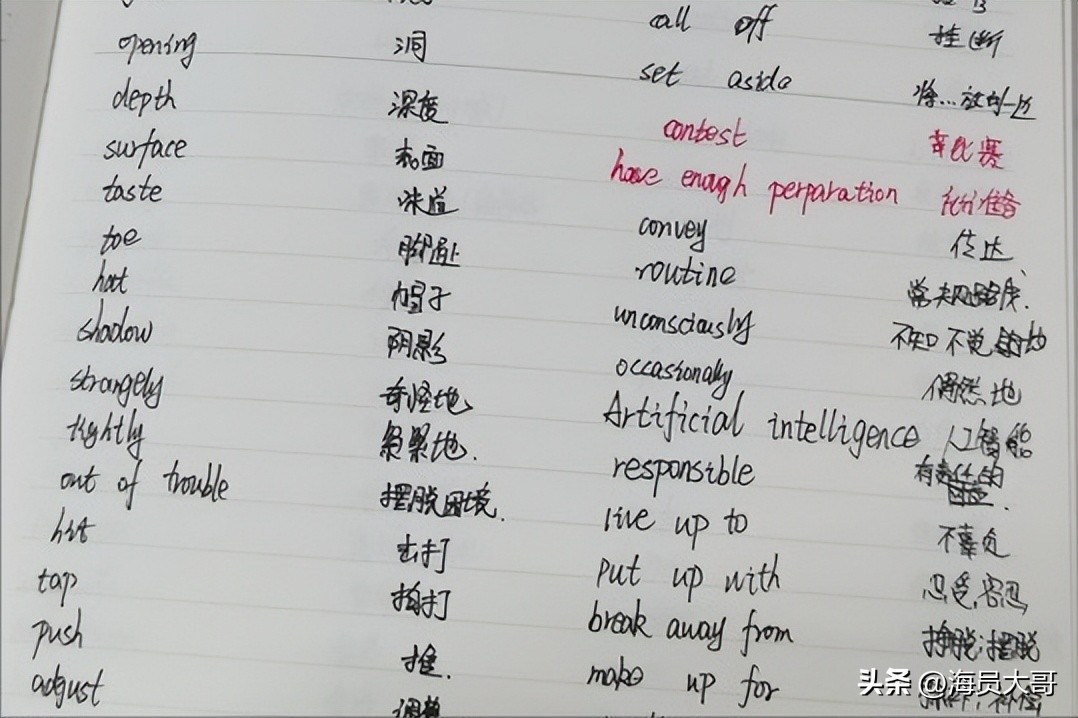 opening 洞
depth 深度
surface 表面
taste 味道
toe 脚趾
hat 帽子
shadow 阴影
strangely 奇怪地
tightly 紧紧地.
out of trouble 摆脱困境.
hit 击打
tap 拍打
push 推.
adjust 调整
call off 挂断
set aside 将...放到一边
contest 竞比赛
have enough perparation 充分准备
convey 传达
routine
unconsciously 不知不觉的地
occasionally 偶然地
Artificial intelligence 人工智能
responsible 有责任的
live up to 不辜负
put up with 忍受,容忍
break away from 挣脱;摆脱
make up for
头条 @海员大哥